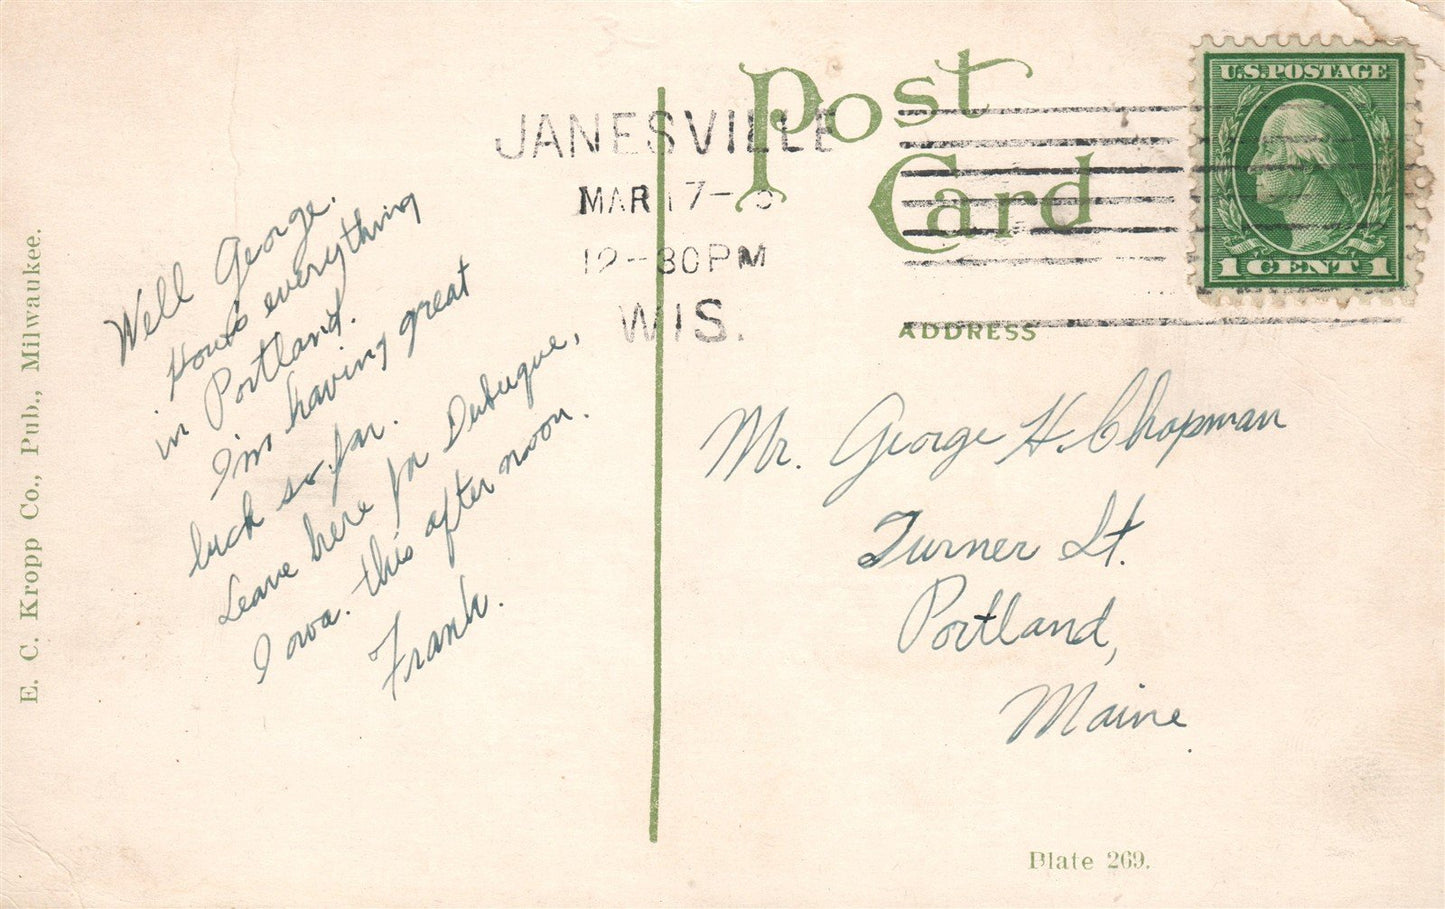 Post
Card
JANESVILLE
MAR 17-
12-30PM
WIS.
U.S. POSTAGE
1 CENT 1
ADDRESS
Well George.
How's everything
in Portland.
I'm having great
luck so far.
Leave here for Dubuque,
Iowa. this after noon.
Frank.
Mr. George H. Chapman
Turner St.
Portland,
Maine.
E. C. Kropp Co., Pub., Milwaukee.
Plate 269.